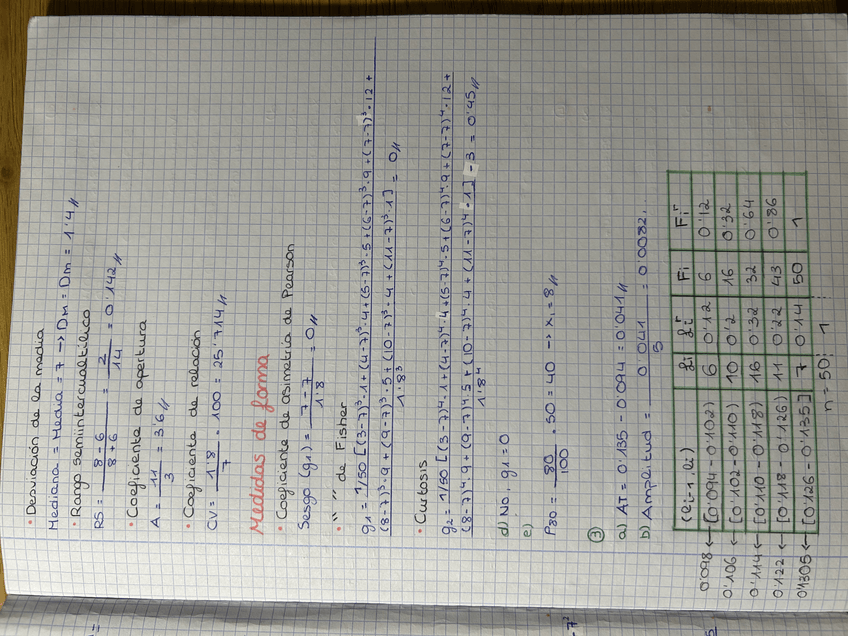 • Desviación de la media
Mediana = Media = 7 → Dm = Dm = 1'4 //
• Rango semiintercualtílico
RS = 8 - 6 / 8 + 6 = 2 / 14 = 0'142 //
• Coeficiente de apertura
A = 11 / 3 = 3'6 //
• Coeficiente de relación
CV = 1'8 / 7 · 100 = 25'714 //
Medidas de forma
• Coeficiente de asimetría de Pearson
Sesgo (g1) = 7 - 7 / 1'8 = 0 //
• " " de Fisher
g1 = 1/50 [(3-7)³·1 + (4-7)³·4 + (5-7)³·5 + (6-7)³·9 + (7-7)³·12 +
(8-7)³·9 + (9-7)³·5 + (10-7)³·4 + (11-7)³·1] = 0 //
1'8³
• Curtosis
g2 = 1/50 [(3-7)⁴·1 + (4-7)⁴·4 + (5-7)⁴·5 + (6-7)⁴·9 + (7-7)⁴·12 +
(8-7)⁴·9 + (9-7)⁴·5 + (10-7)⁴·4 + (11-7)⁴·1] - 3 = 0'45 //
1'8⁴
d) No, g1 = 0
e)
P80 = 80 / 100 · 50 = 40 → xi = 8 //
③
a) AT = 0'135 - 0'094 = 0'041 //
b) Amplitud = 0'041 / 5 = 0'0082
(li-1, li) fi fir Fi Fir
0'098 ← [0'094 - 0'102) 6 0'12 6 0'12
0'106 ← [0'102 - 0'110) 10 0'2 16 0'32
0'114 ← [0'110 - 0'118) 16 0'32 32 0'64
0'122 ← [0'118 - 0'126) 11 0'22 43 0'86
0'1305 ← [0'126 - 0'135] 7 0'14 50 1
n = 50; 1